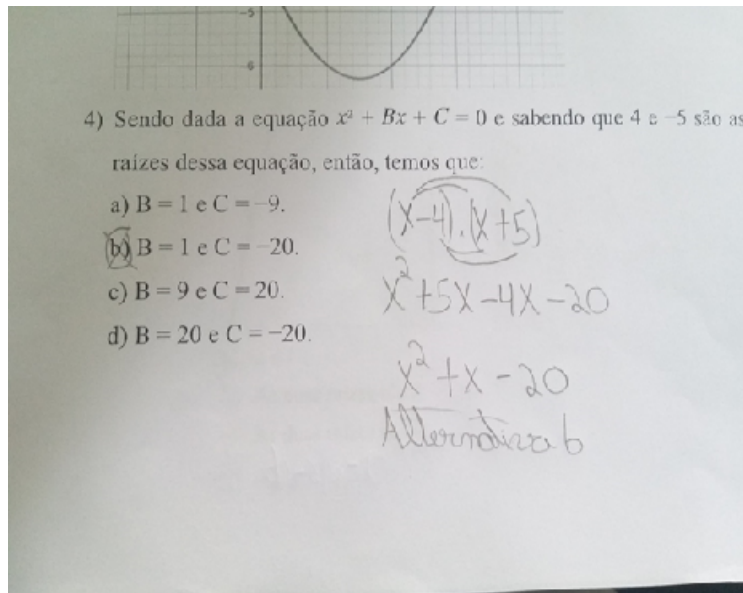 -5
4) Sendo dada a equação x² + Bx + C = 0 e sabendo que 4 e −5 são as
raízes dessa equação, então, temos que:
a) B = 1 e C = −9.
(x−4).(x+5)
b) B = 1 e C = −20.
c) B = 9 e C = 20.
x²+5x−4x−20
d) B = 20 e C = −20.
x²+x−20
Alternativa b